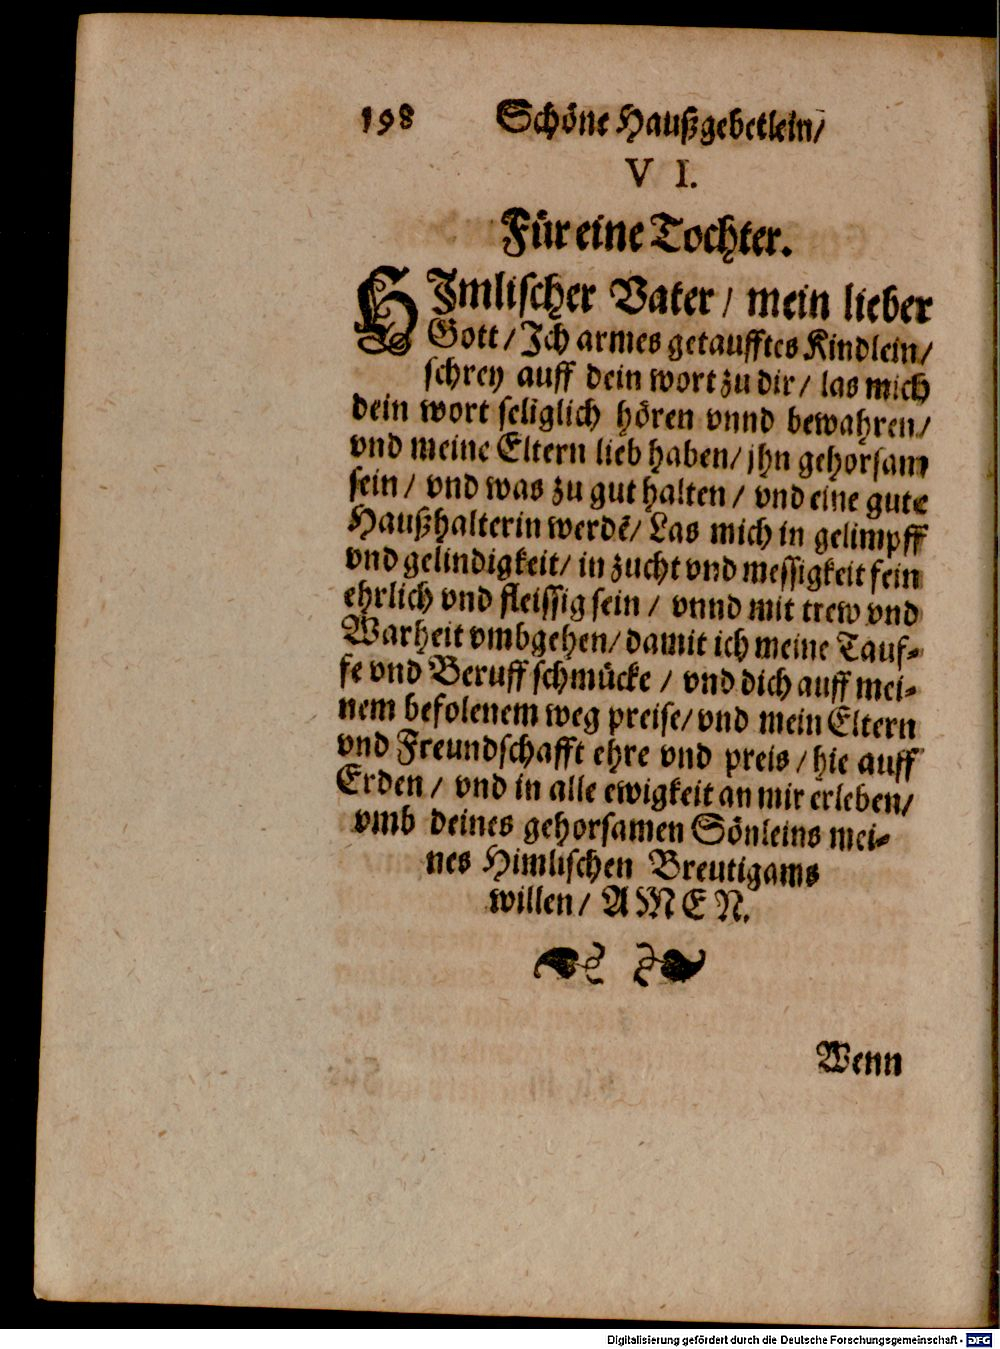 198 Schöne Haußgebetlein/
V I.
Für eine Tochter.
HImlischer Vater / mein lieber
Gott / Ich armes getaufftes Kindlein /
schrey auff dein wort zu dir / las mich
dein wort seliglich hören vnnd bewahren /
vnd meine Eltern lieb haben / jhn gehorsam
sein / vnd was zu gut halten / vnd eine gute
Haußhalterin werdẽ / Las mich in gelimpff
vnd gelindigkeit / in zucht vnd messigkeit fein
ehrlich vnd fleissig sein / vnnd mit trew vnd
Warheit vmbgehen / damit ich meine Tauf-
fe vnd Beruff schmücke / vnd dich auff mei-
nem befolenem weg preise / vnd mein Eltern
vnd Freundschafft ehre vnd preis / hie auff
Erden / vnd in alle ewigkeit an mir erleben /
vmb deines gehorsamen Sönleins mei-
nes Himlischen Breutigams
willen / AMEN.
Wenn
Digitalisierung gefördert durch die Deutsche Forschungsgemeinschaft - DFG